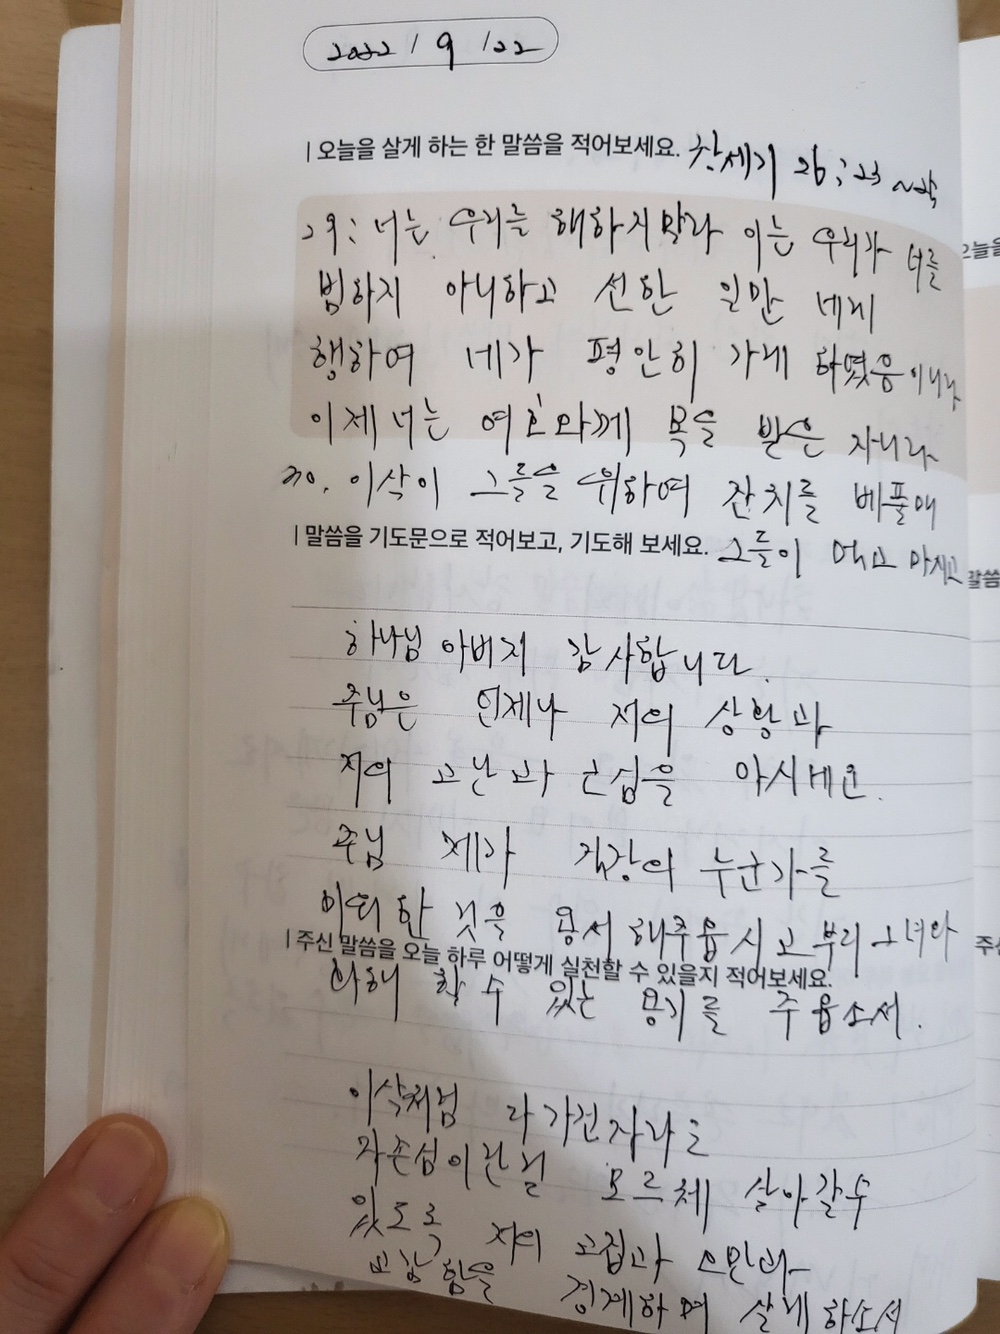 2022 / 9 / 22
| 오늘을 살게 하는 한 말씀을 적어보세요. 창세기 26 : 23 ~
29: 너는 우리를 해하지말라 이는 우리가 너를
범하지 아니하고 선한 일만 네게
행하여 네가 평안히 가게 하였음이니라
이제 너는 여호와께 복을 받은 자니라
30. 이삭이 그들을 위하여 잔치를 베풀매
| 말씀을 기도문으로 적어보고, 기도해 보세요. 그들이 먹고 마시고
하나님 아버지 감사합니다.
주님은 언제나 저의 상황과
저의 고난과 근심을 아시네요.
주님 제가 직장의 누군가를
미워한 것을 용서해주옵시고 부디 그녀와
| 주신 말씀을 오늘 하루 어떻게 실천할 수 있을지 적어보세요.
화해 할 수 있는 용기를 주옵소서.
이삭처럼 다 가진자라는
자존심이란걸 모르체 살아갈수
있도록 저의 고집과 오만과
교만함을 경계하며 살게하소서